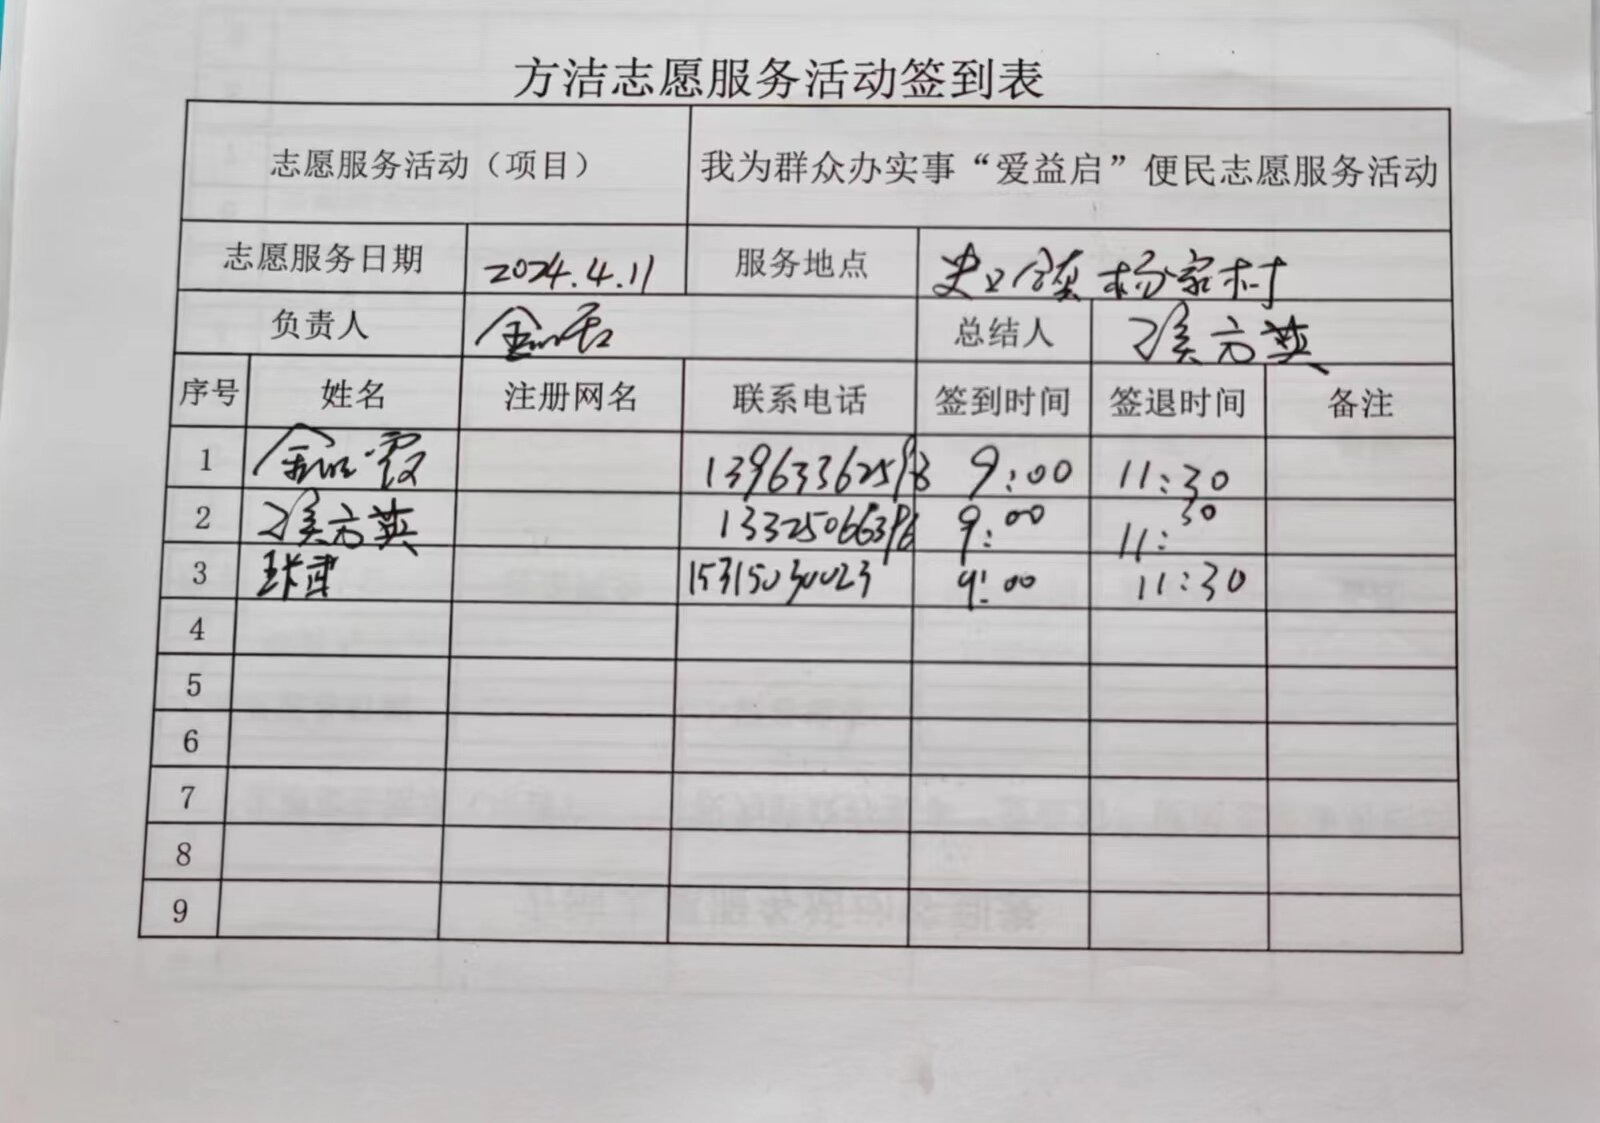 方洁志愿服务活动签到表
志愿服务活动（项目） 我为群众办实事“爱益启”便民志愿服务活动
志愿服务日期 2024.4.11 服务地点 史口镇杨家村
负责人 总结人 方英
序号 姓名 注册网名 联系电话 签到时间 签退时间 备注
1 霞 9:00 11:30
2 方英 9:00 11:30
3 15315030023 9:00 11:30
4
5
6
7
8
9